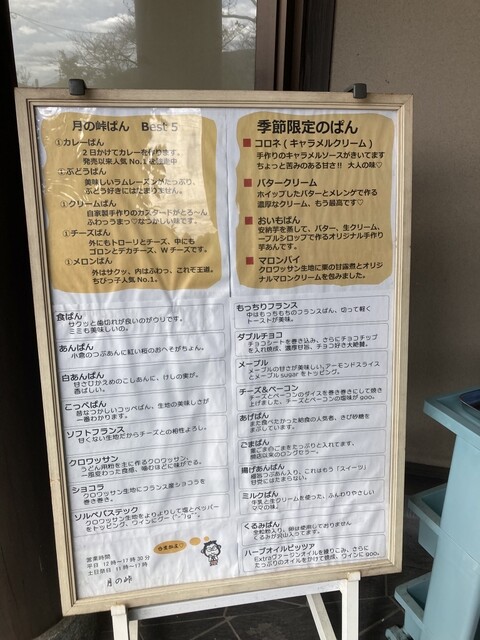 月の峠ぱん Best 5
①カレーぱん
2日かけてカレーを作ります。
発売以来人気 No.1
①ぶどうぱん
美味しいラムレーズンがたっぷり、
ぶどう好きにはたまりません。
①クリームぱん
自家製手作りのカスタードがとろ～ん
ふわっうまっ♡なつかしい味です。
①チーズぱん
外にもトローリとチーズ、中にも
ゴロンとデカチーズ、Wチーズです。
①メロンぱん
外はサクッ、内はふわっ、これぞ王道。
ちびっ子人気 No.1。
季節限定のぱん
■ コロネ(キャラメルクリーム)
手作りのキャラメルソースがきいてます
ちょっと苦みのある甘さ!! 大人の味♡
■ バタークリーム
がっつりとバターとメレンゲで作る
濃厚なクリーム、もう最高です♡
■ おいもぱん
安納芋を蒸して、バター、生クリーム、
ープルシロップで作るオリジナル手作り
芋あんです。
■ マロンパイ
クロワッサン生地に栗の甘露煮とオリジ
ナルマロンクリームを包みました。
食ぱん
サクッと歯切れが良いのがウリです。
ミミも美味しいの。
あんぱん
小倉のつぶあんに紅い桜のおへそがちょん。
白あんぱん
甘さひかえめのこしあんに、けしの実が。
香ばしい。
こっぺぱん
昔なつかしいコッペぱん、生地の美味しさが
一番わかります。
ソフトフランス
甘くない生地だからチーズとの相性よろし。
クロワッサン
うどん用粉を主に作るクロワッサン、
一風変わった食感、噛むほどに味がでる。
ショコラ
クロワッサン生地にフランス産ショコラを
巻き巻き。
ソルペパステック
クロワッサン生地をよりよりして塩とペッパー
をトッピング、ワインにグー
もっちりフランス
中はもっちもちのフランスぱん、切って軽く
トーストが美味。
ダブルチョコ
チョコシートを巻き込み、さらにチョコチップ
を入れ焼成、濃厚甘旨、チョコ好き大絶賛。
メープル
メープルの甘さが美味しい。アーモンドスライス
とメープル sugar をトッピング。
チーズ&ベーコン
チーズとベーコンのダイスを巻き巻きにして焼き
上げました。チーズとベーコンの塩味が goo。
あげぱん
また食べたかった給食の人気者、きび砂糖を
まぶしています。
ごまぱん
黒ごま白ごまをたっぷりと入れてます。
開店以来のロングセラー。
揚げあんぱん
極旨つぶあん入り、これはもう「スイーツ」
甘党にはたまらない。
ミルクぱん
牛乳と生クリームを使った、ふんわりやさしい
ママの味。
くるみぱん
全粒粉入り、卵は使用しておりません
くるみが沢山入ってます。
ハーブオイルピッツァ
Extraヴァージンオイルを練りこみ、さらに
たっぷりのオイルをかけて焼成、ワインに goo。
営業時間
平日 12時～17時30分
土日祭日 11時～17時
月の峠